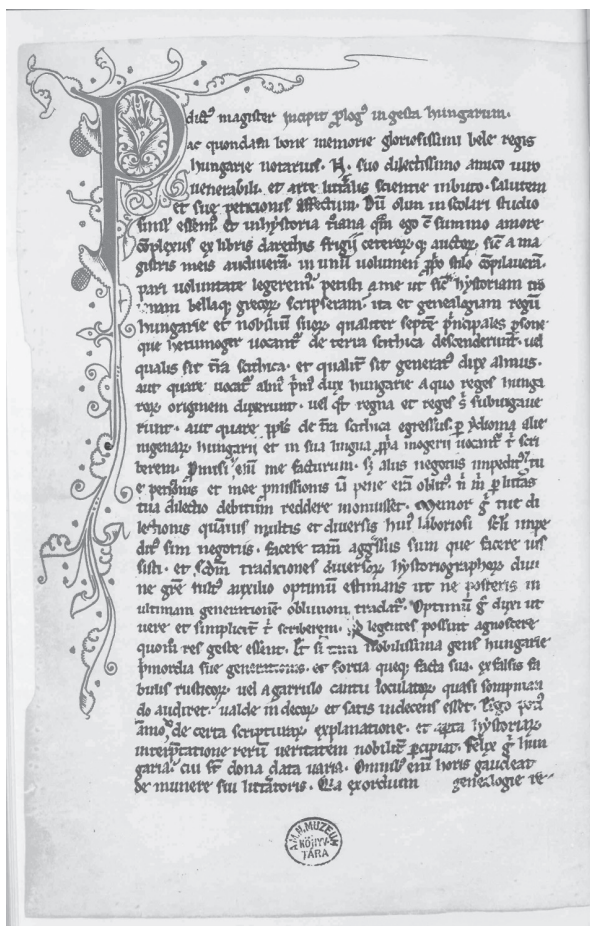 P dict9 magister incipit plog9 in gesta hungarum.
ac quondam bone memorie gloriosissimi bele regis
hungarie notarius. suo dilectissimo amico uiro
uenerabili. et arte litt̄alis scientie inbuto. salutem
et sue peticionis affectum. Dū olim in scolari studio
simul essem9. et in hystoria t̄iana q̄m ego c̄ summo amore
cōplexus ex libris daretis frigii ceteroꝝ q̨ auctoꝝ. sic̄ a ma
gistris meis audiuerā. in unū uolumen ꝓprio stilo cōpilauerā.
pari uoluntate legerem9. petisti a me ut sic̄ hystoriam tro
ianam bellaq̨ grecoꝝ scripseram. ita et genealogiam regū
hungarie et nobiliū suoꝝ. qualiter septē p̄ncipales ꝑsone
que hetumoger uocant̄. de terra scithica descenderunt. uel
qualis sit t̄ra scithica. et qualit̄ sit generat9 dux almus.
aut quare uocat̄ alm9 p̄m9 dux hungarie a quo reges hunga
roꝝ originem duxerunt. uel q̄t regna et reges s̄ subiugaue
runt. aut quare ppls̄ de t̄ra scithica egressus. ꝑ ydioma alie
nigenaꝝ hungarii et in sua lingua ꝓp̄a mogerii uocant̄ t̄ scri
berem. Promisi eni me facturum. s; aliis negotiis impedit9. tu
e petitionis et mee ꝓmissionis iā pene erā oblit9. n̄ m̄ ꝑ litt̄as
tua dilectio debitum reddere monuisset. Memor g̊ tue di
lectionis quāuis multis et diuersis hui9 laboriosi sc̄li impe
dit9 sim negotiis. facere tam̄ aggressus sum que facere ius
sisti. et sc̄dm traditiones diuersoꝝ hystoriographoꝝ diui
ne gr̄e fult9 auxilio optimū estimans ut ne posteris in
ultimam generationē obliuioni tradat̄. Optimū g̊ duxi ut
uere et simplicit̄ t̄ scriberem. qd legentes possint agnoscere
quom̊ res geste essent. Et si tam nobilissima gens hungarie
p̄mordia sue generationis. et fortia queq; facta sua. ex falsis fa
bulis rusticoꝝ. uel a garrulo cantu ioculatoꝝ quasi sompnian
do audiret. ualde indecoꝝ et satis indecens esset. Ergo poti9
amo de certa scripturaꝝ explanatione. et aperta hystoriaꝝ
interp̄tatione rerū ueritatem nobilit̄ ꝑcipiat. Felix g̊ hun
garia. cui st̄ dona data uaria. Omnib; eni horis gaudeat
de munere sui litt̄atoris. Quia exordium genealogie re-
A M. N. MUZEUM
KÖNYV
TÁRA